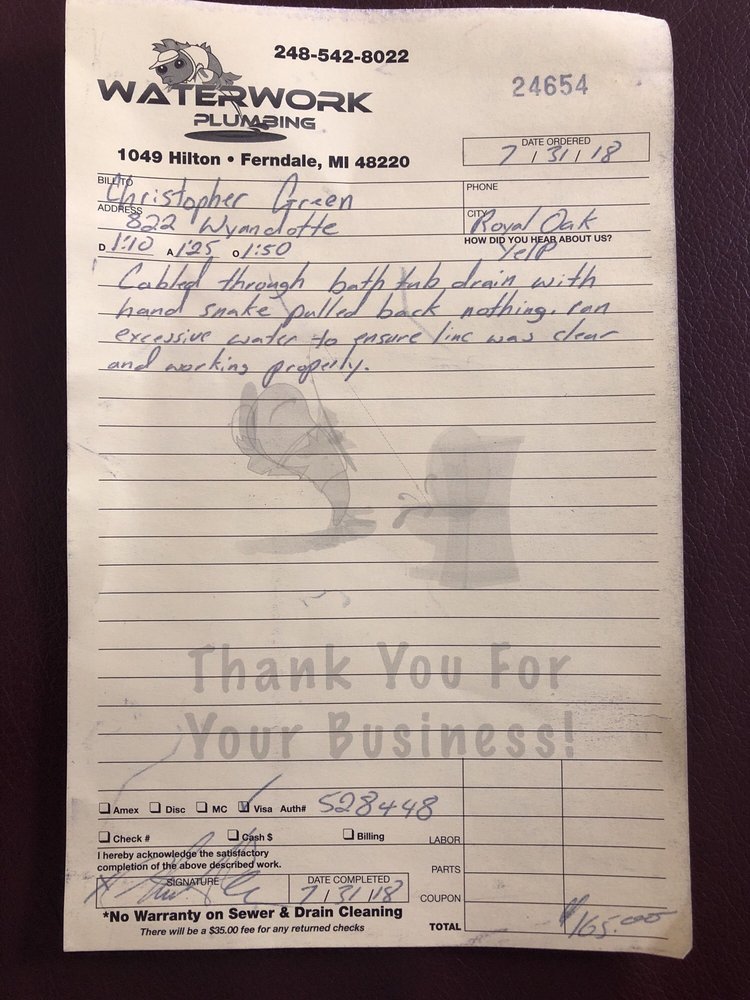 248-542-8022
24654
WATERWORK
PLUMBING
1049 Hilton • Ferndale, MI 48220
DATE ORDERED
7/31/18
BILL TO
Christopher Green
PHONE
ADDRESS
822 Wyandotte
CITY
Royal Oak
D 1:10 A 1:25 O 1:50
HOW DID YOU HEAR ABOUT US?
Yelp
Cabled through bath tub drain with
hand snake pulled back nothing. ran
excessive water to ensure line was clear
and working properly.
Thank You For
Your Business!
Amex Disc MC Visa Auth# 528448
Check # Cash $ Billing
LABOR
I hereby acknowledge the satisfactory
completion of the above described work.
PARTS
X
SIGNATURE
DATE COMPLETED
7/31/18
COUPON
*No Warranty on Sewer & Drain Cleaning
There will be a $35.00 fee for any returned checks
TOTAL
$165.00